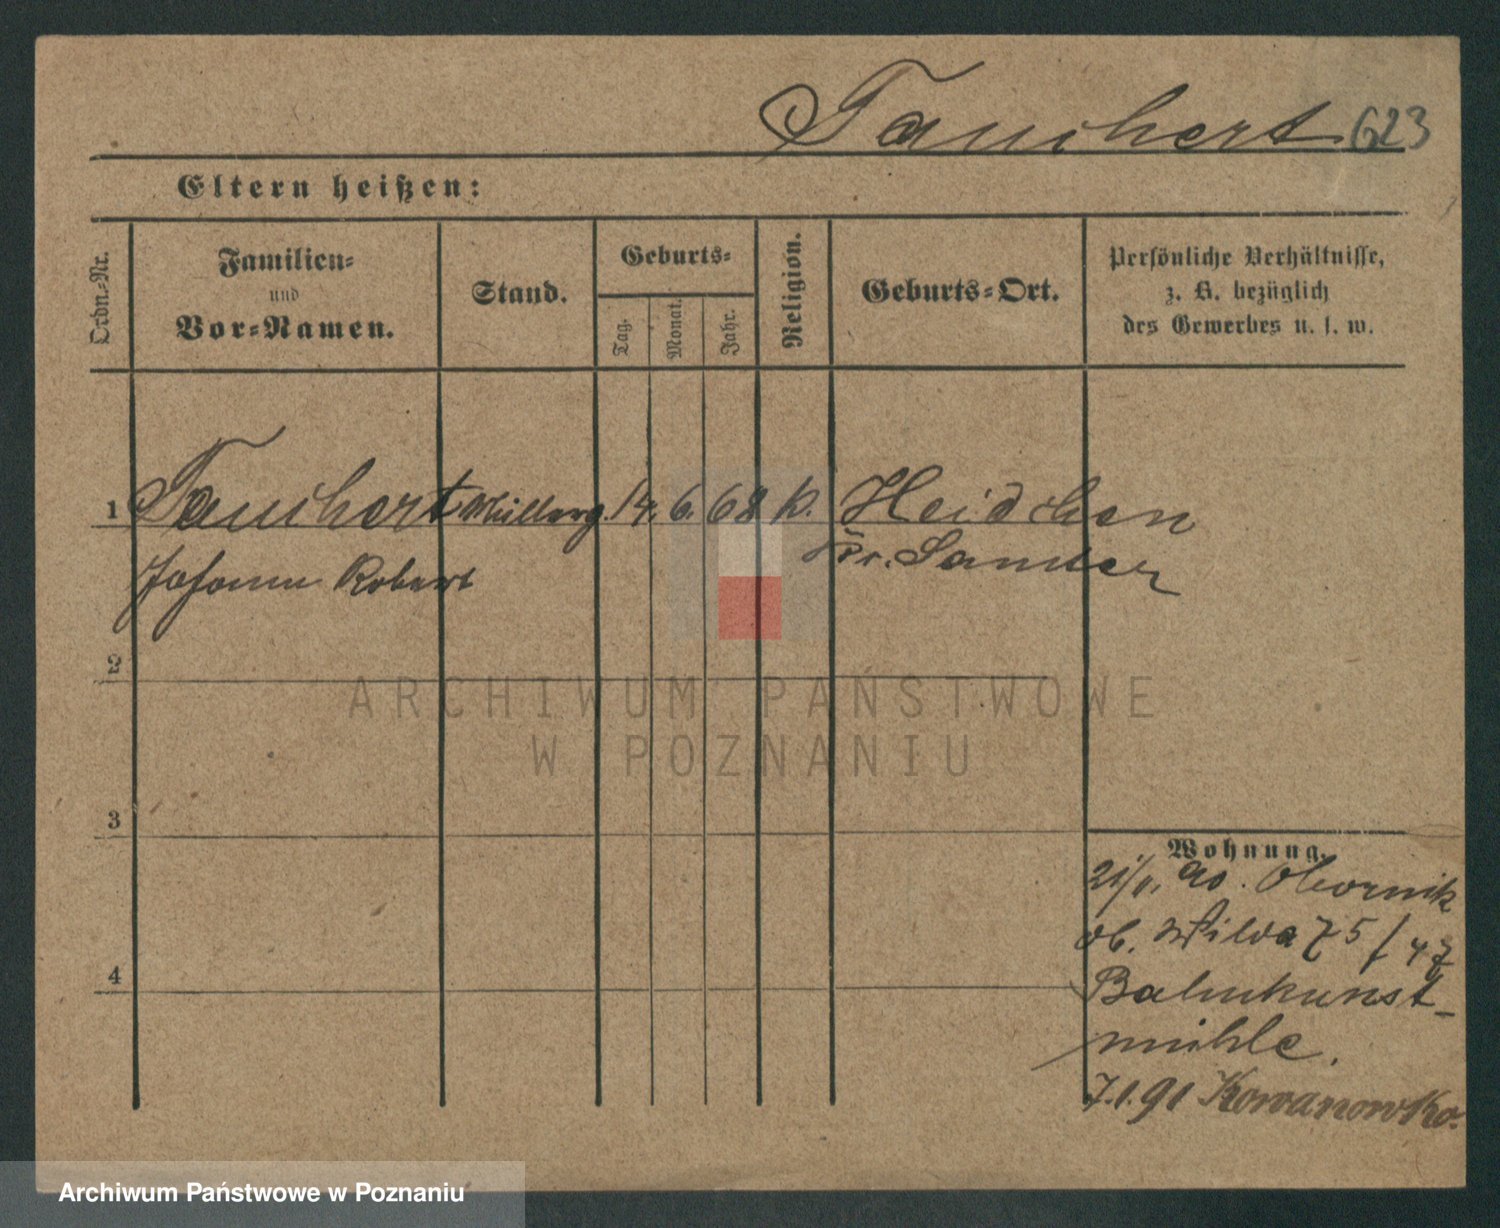 Tauchert 623
Eltern heißen:
Ordn.-Nr.
Familien-
und
Vor-Namen.
Stand.
Geburts-
Tag.
Monat.
Jahr.
Religion.
Geburts-Ort.
Persönliche Verhältnisse,
z. B. bezüglich
des Gewerbes u. s. w.
1 Tauchert Müllerg. 14. 6. 68 k. Heidchen
Johann Robert Kr. Samter
2
3
4
Wohnung.
21/1. 90. Obornik
ob. Wilda 75/47
Bahnkunst-
mühle.
7.1.91 Kowanowko.
ARCHIWUM PAŃSTWOWE
W POZNANIU
Archiwum Państwowe w Poznaniu